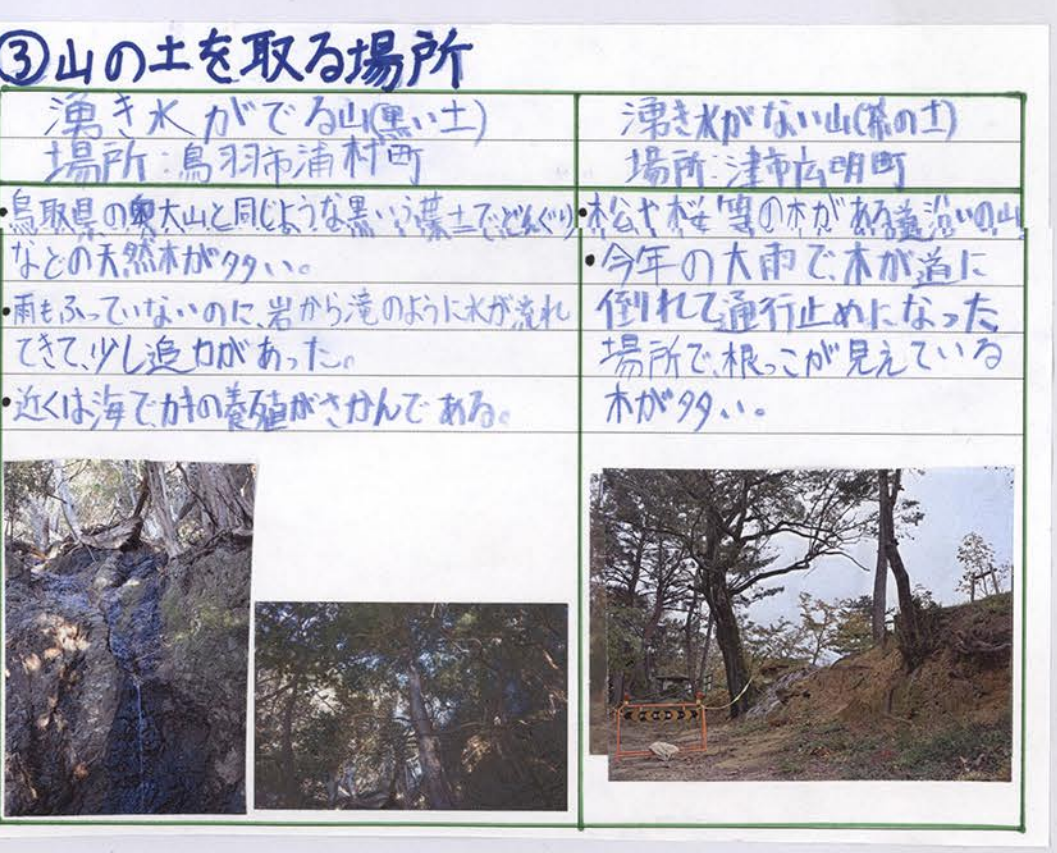 ③山の土を取る場所
湧き水がでる山(黒い土)
場所:鳥羽市浦村町
・鳥取県の奥大山と同じような黒いう葉土でどんぐり
などの天然木が多い。
・雨もふっていないのに、岩から滝のように水が流れ
てきて、少し迫力があった。
・近くは海でカキの養殖がさかんである。
湧き水がない山(茶の土)
場所:津市広明町
・松や桜等の木がある道沿いの山
・今年の大雨で、木が道に
倒れて通行止めになった
場所で、根っこが見えている
木が多い。